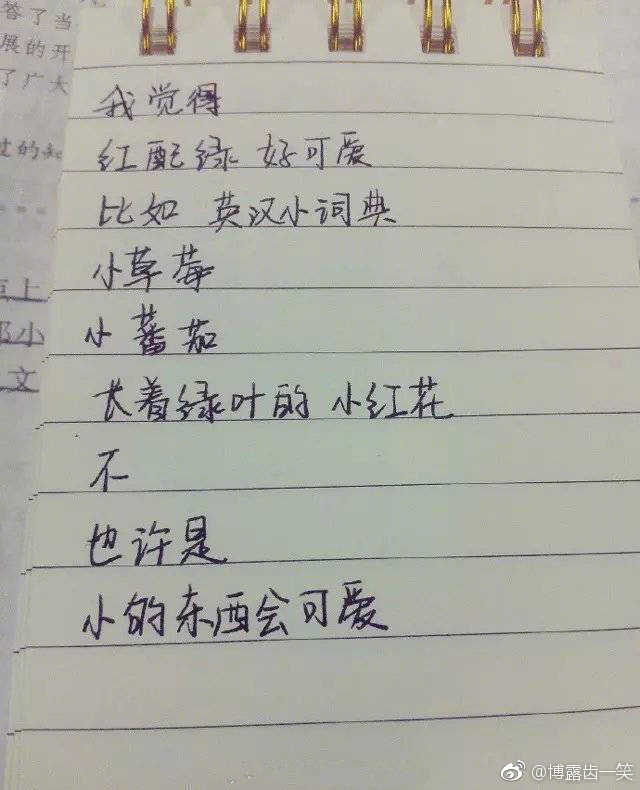 答了当
展的开
了广大
过的知
上
小
文
我觉得
红配绿 好可爱
比如 英汉小词典
小草莓
小蕃茄
长着绿叶的 小红花
不
也许是
小的东西会可爱
@博露齿一笑